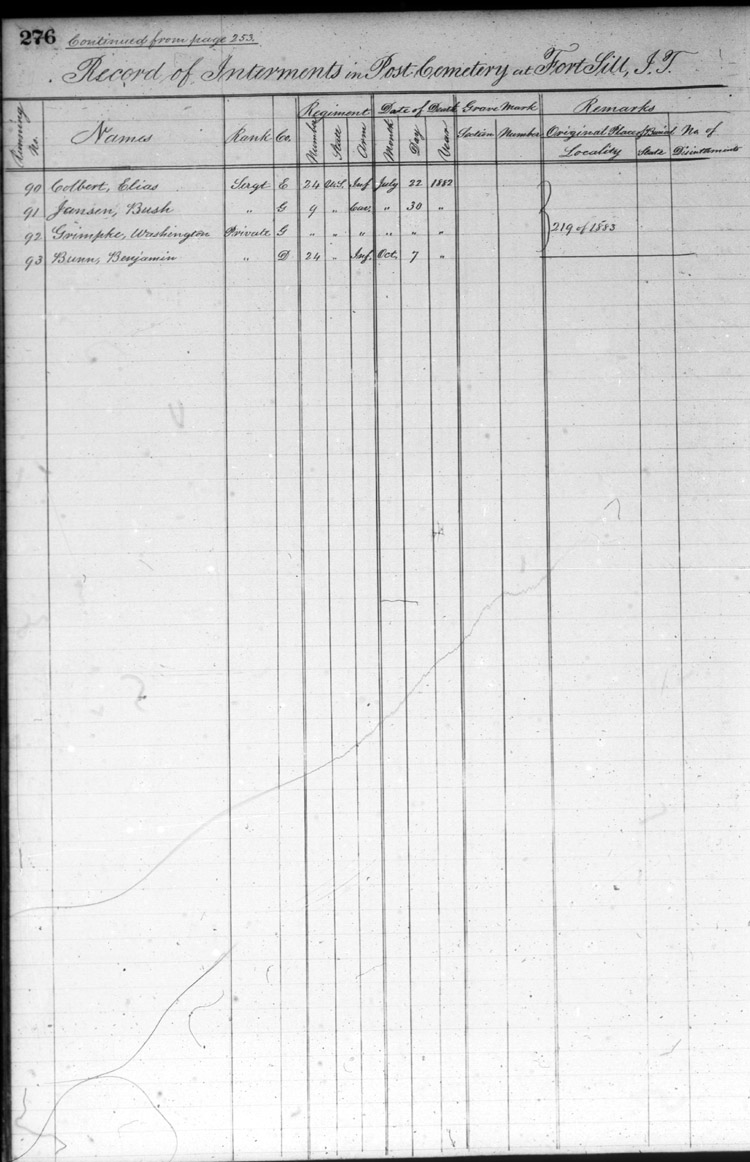 276 Continued from page 253.
Record of Interments in Post Cemetery at Fort Sill, I.T.
Regiment Date of Death Grave Mark Remarks
Running No. Names Rank Co. Number State Arm Month Day Year Section Number Original Place of Burial No. of
Locality State Disinterments
90 Colbert, Elias Sergt E 24 U.S. Inf. July 22 1882
91 Jansen, Bush " G 9 " Cav. " 30 "
92 Grimpke, Washington Private G " " " " " " 219 of 1883
93 Bunn, Benjamin " D 24 " Inf. Oct. 7 "